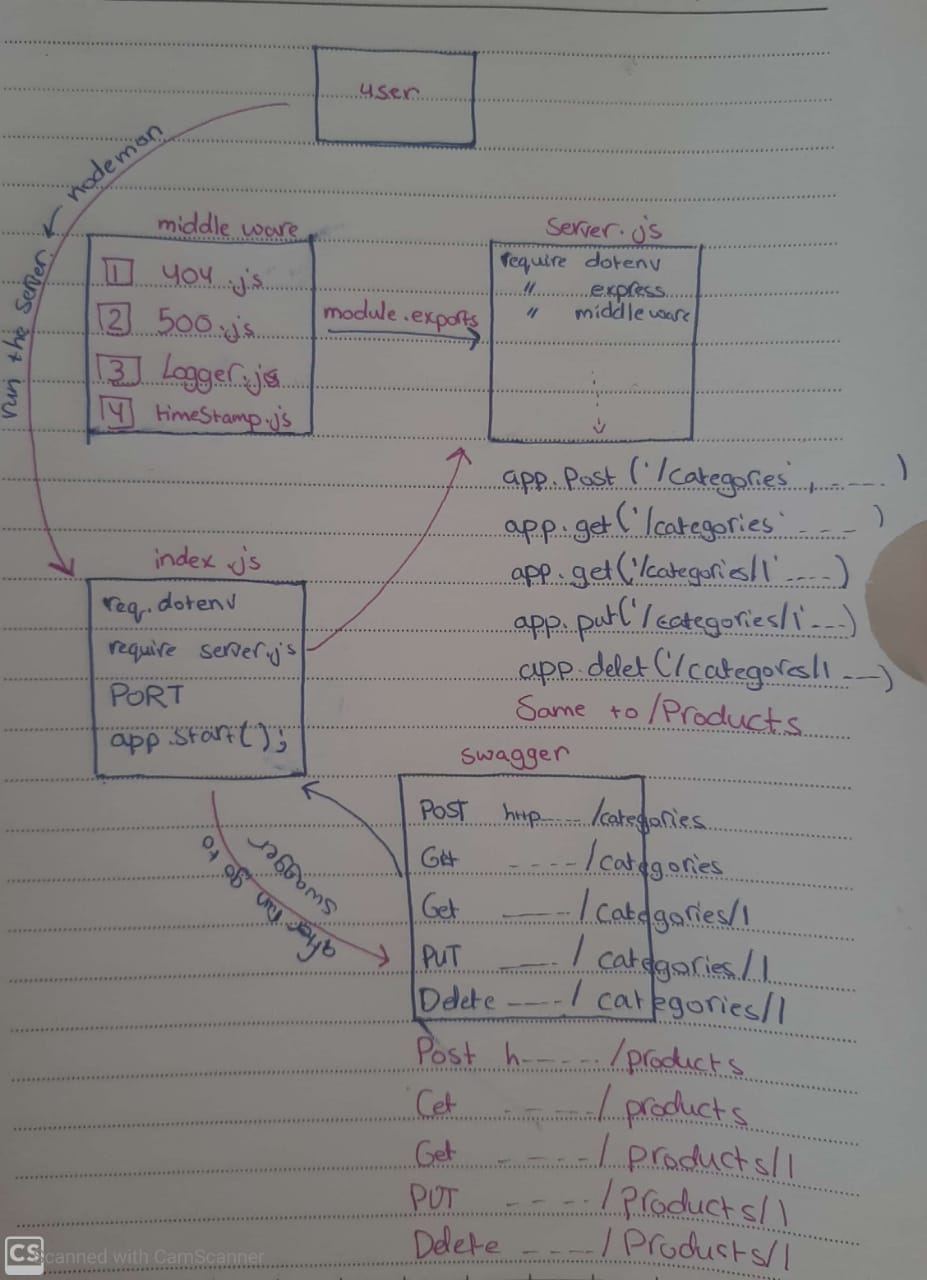 user
nodemon
run the server
middle ware
1 404.js
2 500.js
3 Logger.js
4 timeStamp.js
module.exports
Server.js
require dotenv
" express
" middleware
app.Post ('/categories', ----- )
app.get('/categories' --- - )
app.get('/categories/1' ----)
app.put('/categories/1' ---)
app.delet('/categores/1 ---)
Same to /Products
index.js
req.dotenv
require server.js
PORT
app.start();
after run go to
swagger
swagger
POST http---- /categories
Get ---- /categories
Get ---- /categories/1
PUT ---- / categories/1
Delete ---- / categories/1
Post h------ /products
Get - ---- / products
Get - ---- / products/1
PUT - - --- / Products/1
Delete - ---- / Products/1
CS Scanned with CamScanner